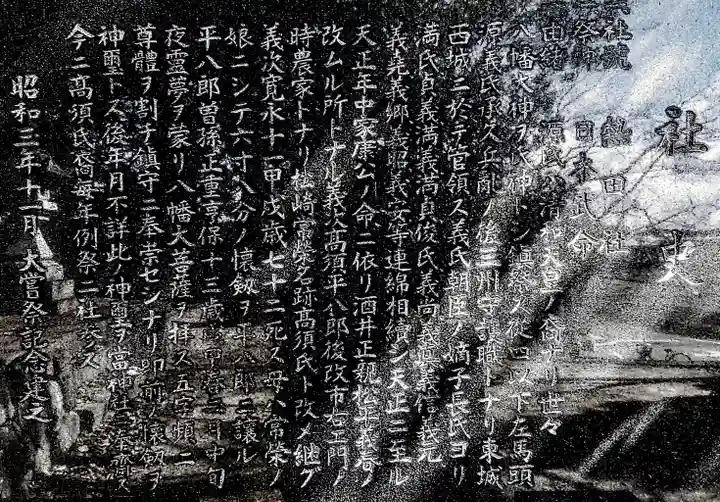 社史
社號 熱田社
祭神 日本武命
由緒 源氏ハ清和天皇ノ裔ナリ世々
八幡大神ヲ氏神トシ鎮祭ス從四以下左馬頭
源義氏承久兵亂ノ後三州守護職トナリ東城
西城ニ於テ管領ス義氏朝臣ノ嫡子長氏ヨリ
満氏貞義満義満貞俊氏義尚義真義信義元
義堯義郷義昭義安等連綿相續シ天正ニ至ル
天正年中家康公ノ命ニ依リ酒井正親松平義春ノ
改ムル所トナル義次高須平八郎後改市右エ門ノ
時農家トナリ松崎常榮名跡高須氏ト改メ継グ
義次寛永十一甲戌歳七十二死ス母ハ常榮ノ
娘ニシテ六寸八分ノ懐劔ヲ平八郎ニ譲ル
平八郎曽孫正重享保十三歳 二月中旬
夜靈夢ヲ蒙リ八幡大菩薩ヲ拝ス五字頻ニ
尊體ヲ割ナ鎮守ニ奉崇センナリ即前ノ懐劔ヲ
神璽トス後年月不詳此ノ神璽ヲ當神社ニ奉齋ス
今ニ高須氏裔毎年例祭ニ社參ス
昭和三年十一月 大嘗祭記念建之